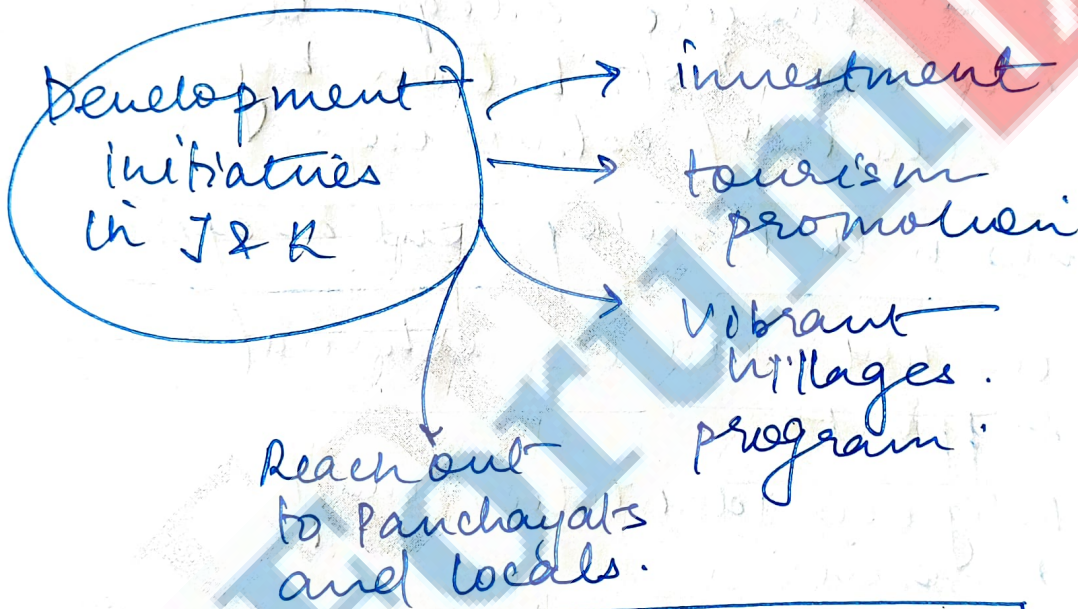 Development
initiatives
in J & K
investment
tourism
promotion
Vibrant
Villages.
program.
Reach out
to Panchayats
and locals.
Forum